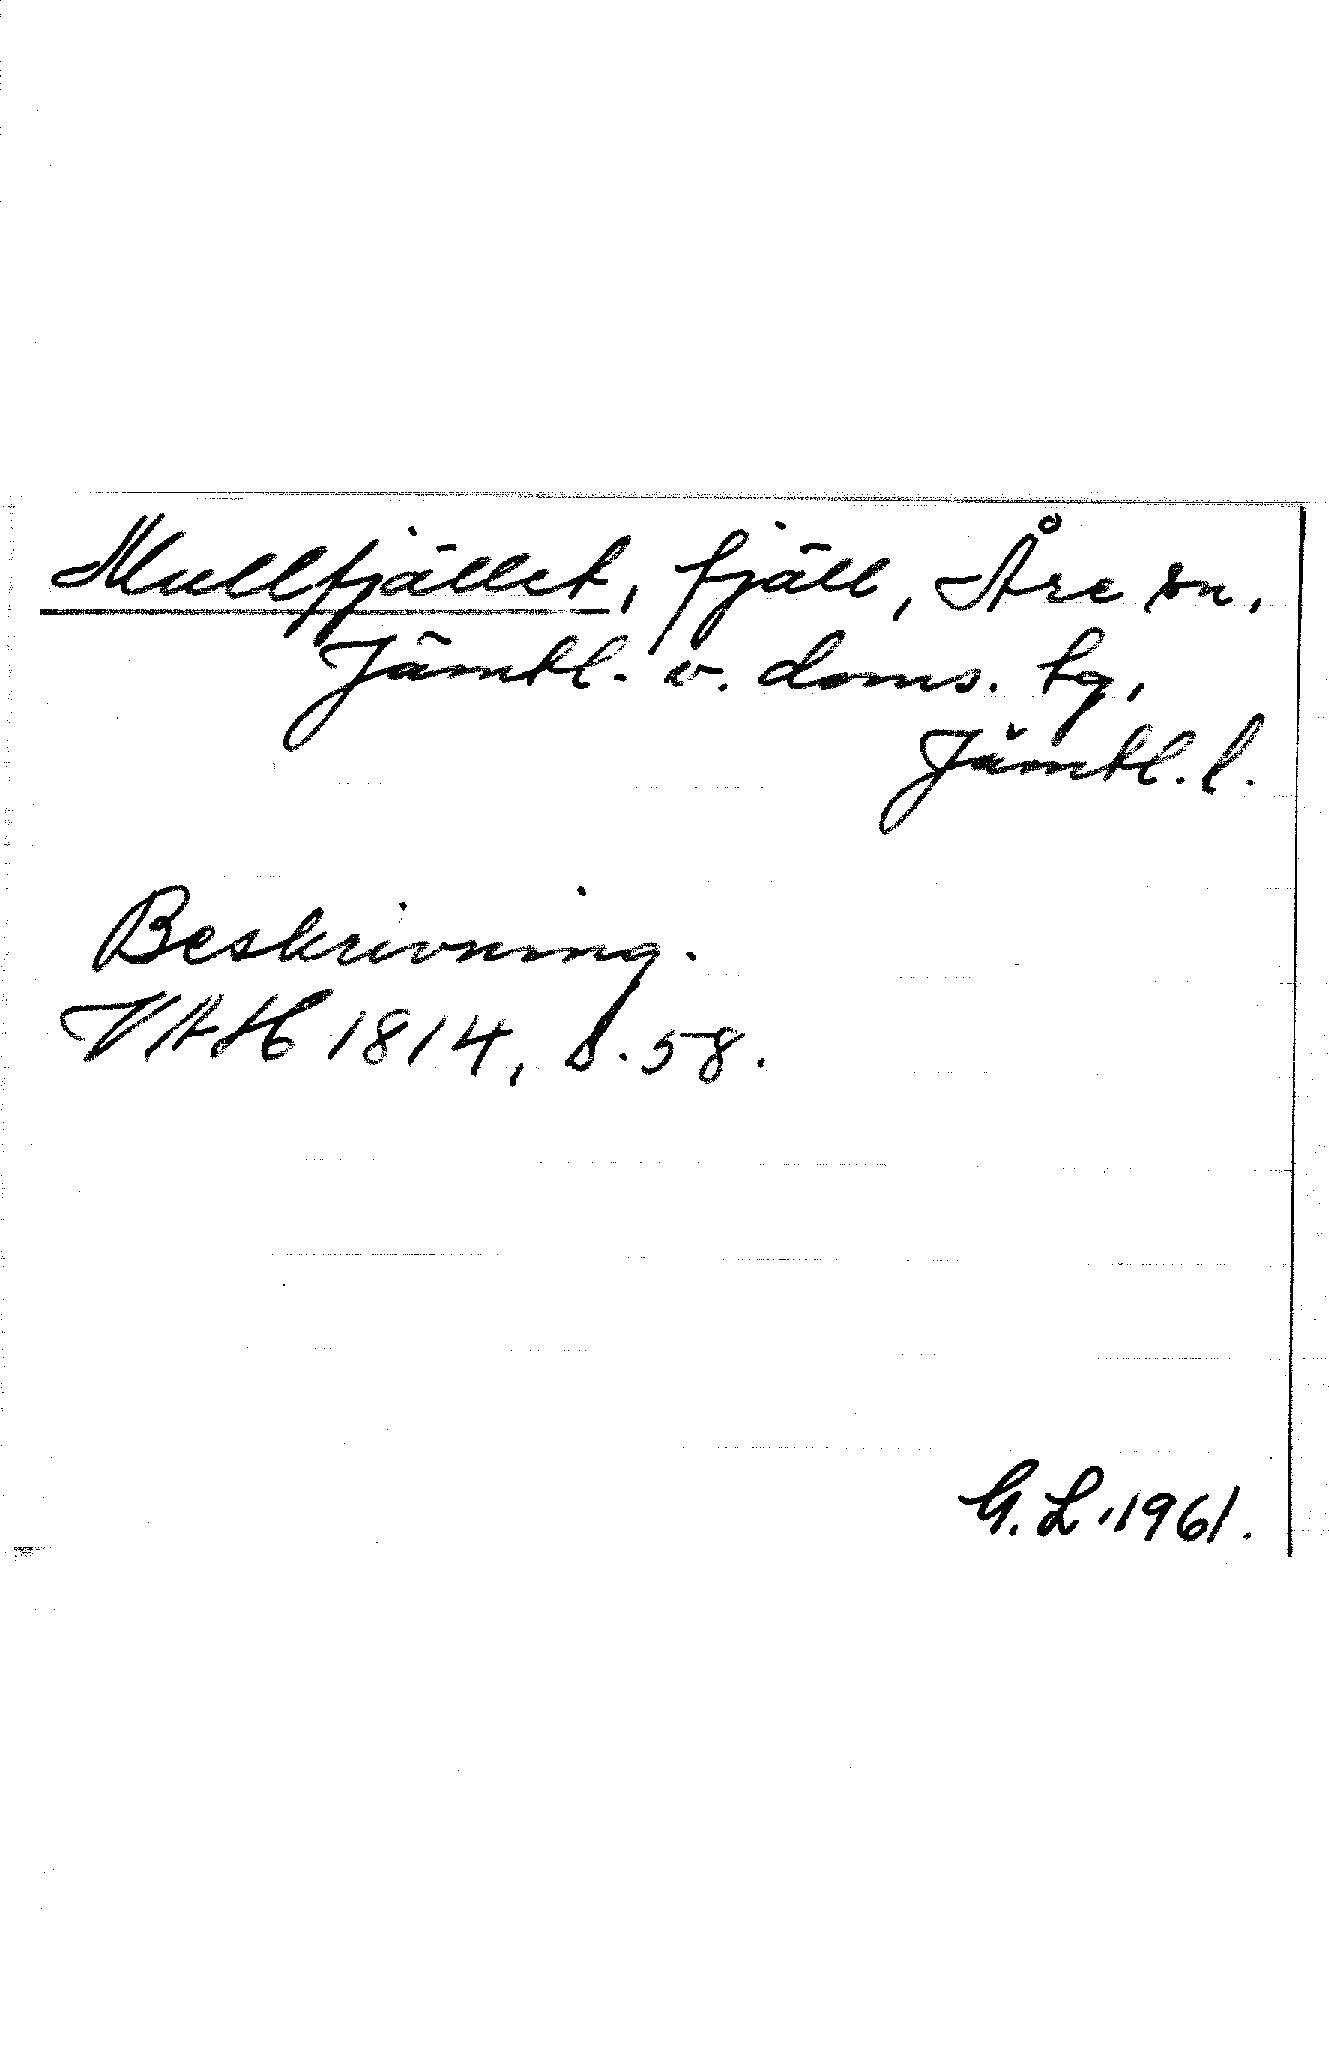 Mullfjället, fjäll, Åre sn,
Jämtl. v. doms. tg,
Jämtl. l.
Beskrivning.
VAH 1814, s. 58.
G. L. 1961.